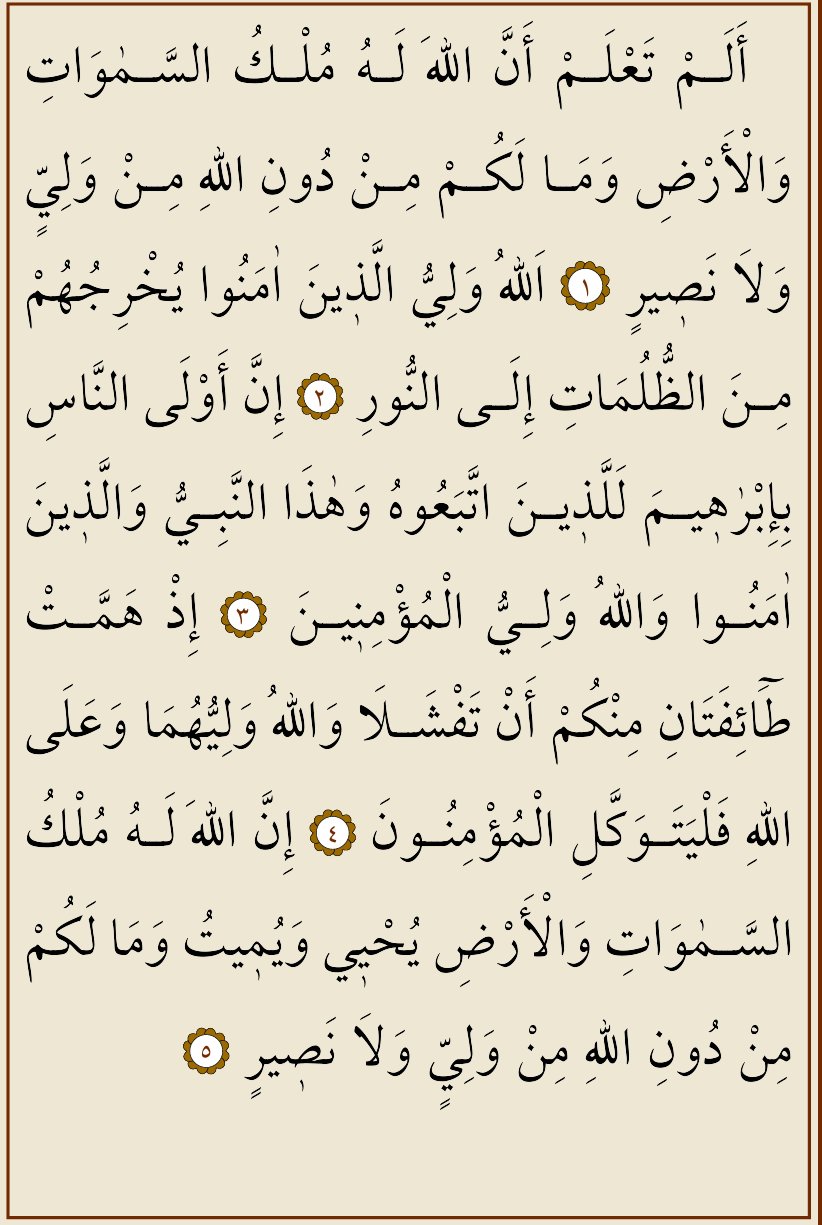 أَلَــمْ تَعْلَــمْ أَنَّ اللهَ لَــهُ مُلْــكُ السَّــمٰوَاتِ
وَالْأَرْضِ وَمَــا لَكُــمْ مِــنْ دُونِ اللهِ مِــنْ وَلِيٍّ
وَلَا نَصٖيرٍ ١ اَللهُ وَلِيُّ الَّذٖينَ اٰمَنُوا يُخْرِجُهُمْ
مِــنَ الظُّلُمَاتِ إِلَــى النُّورِ ٢ إِنَّ أَوْلَى النَّاسِ
بِإِبْرٰهٖيــمَ لَلَّذٖيــنَ اتَّبَعُوهُ وَهٰذَا النَّبِــيُّ وَالَّذٖينَ
اٰمَنُــوا وَاللهُ وَلِــيُّ الْمُؤْمِنٖيــنَ ٣ إِذْ هَمَّــتْ
طَٓائِفَتَانِ مِنْكُمْ أَنْ تَفْشَــلَا وَاللهُ وَلِيُّهُمَا وَعَلَى
اللهِ فَلْيَتَــوَكَّلِ الْمُؤْمِنُــونَ ٤ إِنَّ اللهَ لَــهُ مُلْكُ
السَّــمٰوَاتِ وَالْأَرْضِ يُحْيٖي وَيُمٖيتُ وَمَا لَكُمْ
مِنْ دُونِ اللهِ مِنْ وَلِيٍّ وَلَا نَصٖيرٍ ٥